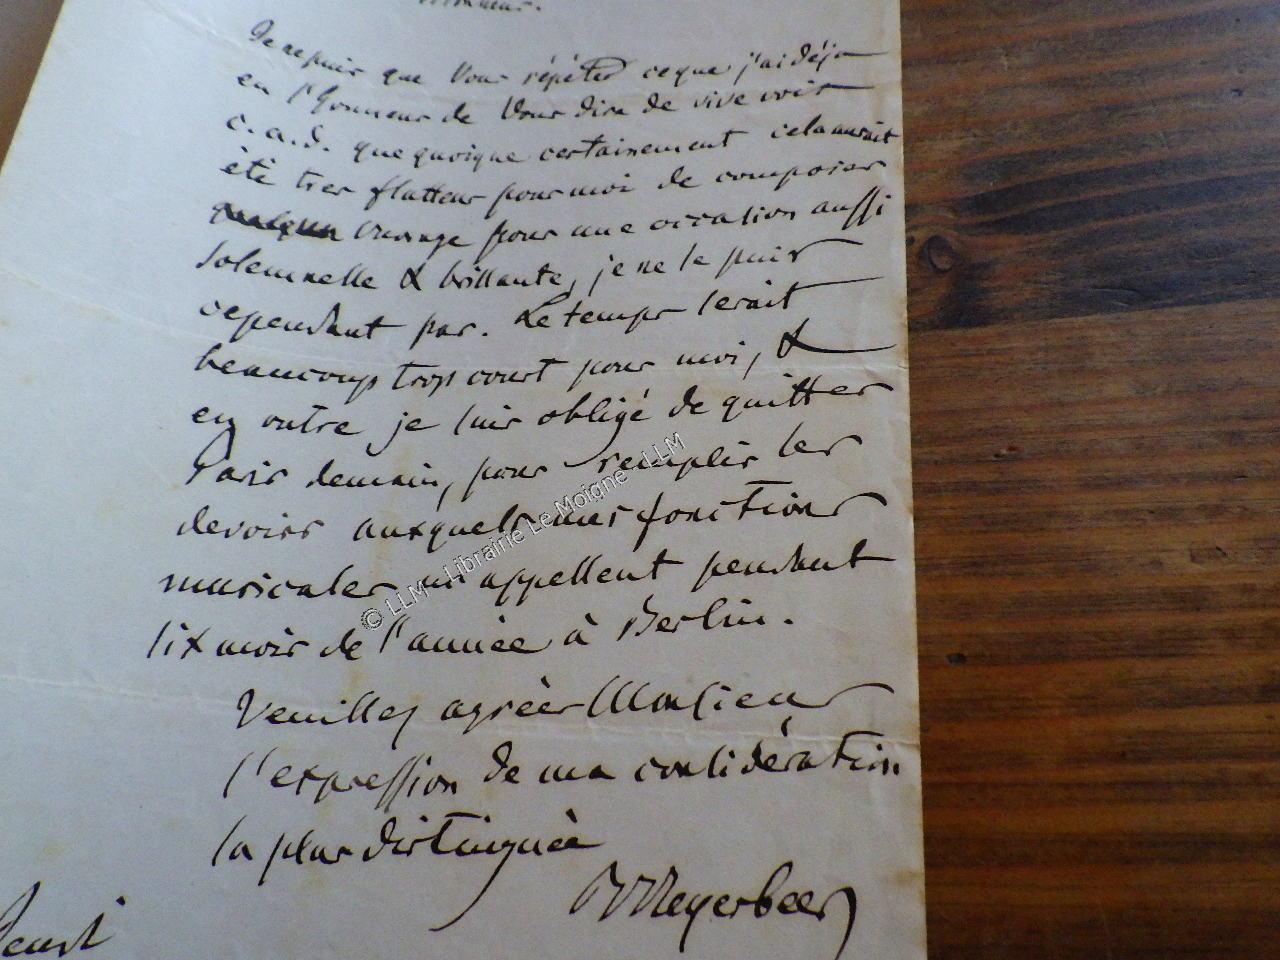 Monsieur.
Je ne puis que Vous répéter ce que j'ai déjà
eu l'honneur de Vous dire de vive voix
c. a. d. que quoique certainement cela aurait
été tres flatteur pour moi de composer
quelqun ouvrage pour une occasion aussi
solemnelle & brillante, je ne le puis
cependant pas. Le temps serait
beaucoup trop court pour moi, &
en outre je suis obligé de quitter
Paris demain, pour remplir les
devoirs auxquels mes fonctions
musicales m'appellent pendant
six mois de l'année à Berlin.
Veuillez agréer Monsieur
l'expression de ma considération
la plus distinguée
Meyerbeer
© LLM - Librairie Le Moigne - LLM